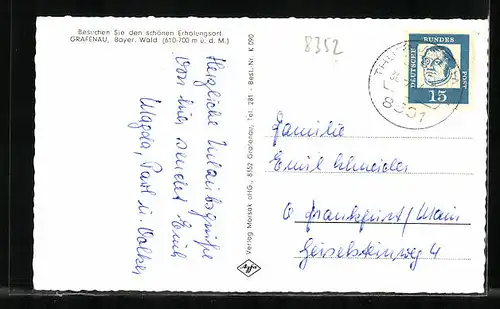 Besuchen Sie den schönen Erholungsort
GRAFENAU, Bayer. Wald (610-700 m ü. d. M.)
8352
Herzliche Urlaubsgrüße
von hier sendet Euch
Magda, Karl u. Volker
Verlag Morsak oHG., 8352 Grafenau, Tel. 281 - Best.-Nr. K 090
DEUTSCHE BUNDES POST
15
8351
Familie
Emil Schneider
6 Frankfurt/Main
Geiselsteinweg 4